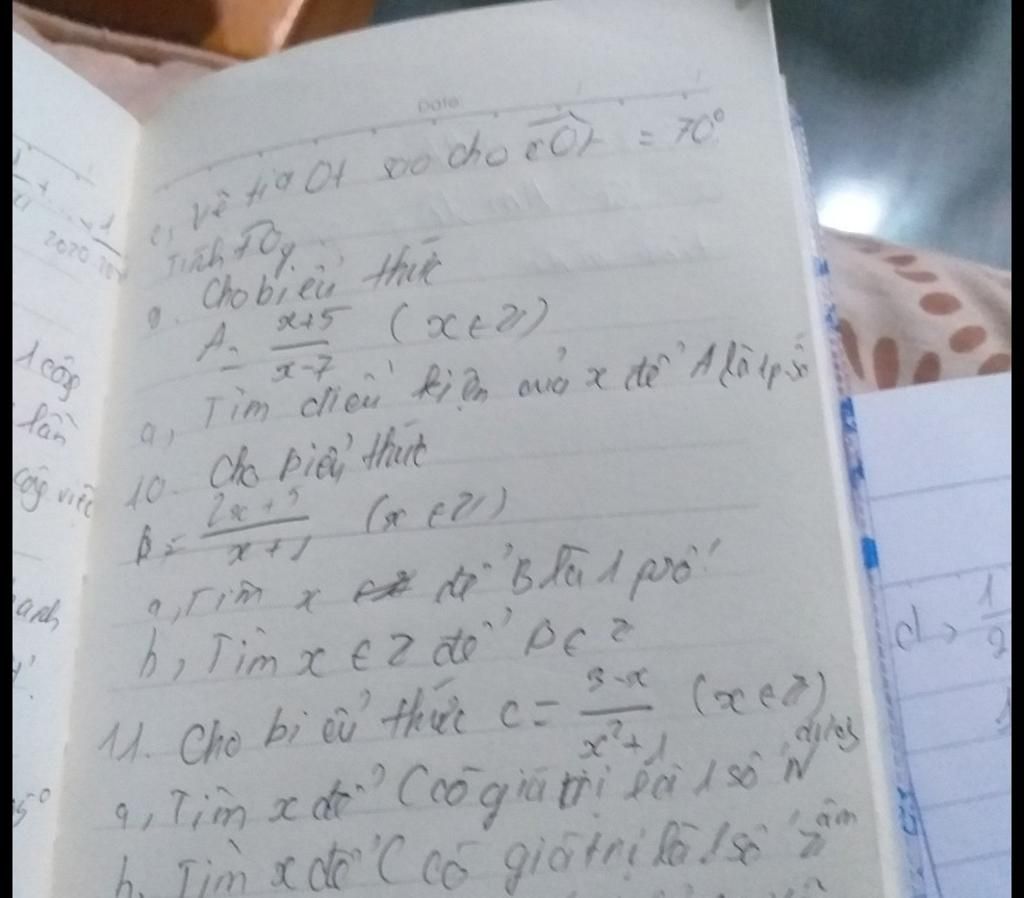 Date
c, Vẽ tia Ot sao cho xOt = 70°
Tính tOy
9. Cho biểu thức
A = x+5/x-7 (x ∈ Z)
a, Tìm điều kiện của x để A là 1 p.số
10. Cho biểu thức
B = /x+1 (x ∈ Z)
a, Tìm x để B là 1 p số
b, Tìm x ∈ Z để B ∈ Z
11. Cho biểu thức C = 3-x/x²+1 (x ∈ Z)
a, Tìm x để C có giá trị là 1 số N
b, Tìm x để C có giá trị là 1 số Z âm
1 công
lần
công việc
anh
5°
d, 1/2